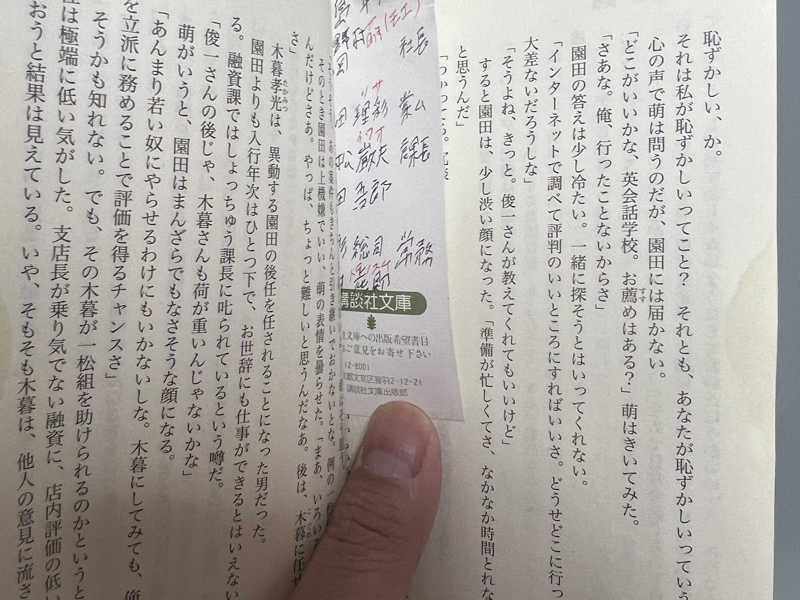 恥ずかしい、か。
それは私が恥ずかしいってこと？　それとも、あなたが恥ずかしいっていう
心の声で萌は問うのだが、園田には届かない。
「どこがいいかな、英会話学校。お薦めはある？」萌はきいてみた。
「さあな。俺、行ったことないからさ」
園田の答えは少し冷たい。一緒に探そうとはいってくれない。
「インターネットで調べて評判のいいところにすればいいさ。どうせどこに行っ
大差ないだろうしな」
「そうよね、きっと。俊一さんが教えてくれてもいいけど」
すると園田は、少し渋い顔になった。「準備が忙しくてさ、なかなか時間とれな
と思うんだ」
社長
理彩
リサ
業山
巌夫
イワオ
課長
吾郎
総司
常務
講談社文庫
文庫への出版希望書目
ご意見をお寄せ下さい
12-8001
都文京区音羽2-12-21
講談社文庫出版部
そのとき園田は上機嫌でいい、萌の表情を曇らせた。「まあ、いろい
んだけどさあ。やっぱ、ちょっと難しいと思うんだなあ。後は、木暮に任せ
さ」
木暮孝光は、異動する園田の後任を任されることになった男だった。
たかみつ
園田よりも入行年次はひとつ下で、お世辞にも仕事ができるとはいえない
る。融資課ではしょっちゅう課長に叱られているという噂だ。
「俊一さんの後じゃ、木暮さんも荷が重いんじゃないかな」
萌がいうと、園田はまんざらでもなさそうな顔になる。
「あんまり若い奴にやらせるわけにもいかないしな。木暮にしてみても、俺
を立派に務めることで評価を得るチャンスさ」
そうかも知れない。でも、その木暮が一松組を助けられるのかというと
性は極端に低い気がした。支店長が乗り気でない融資に、店内評価の低い
おうと結果は見えている。いや、そもそも木暮は、他人の意見に流さ